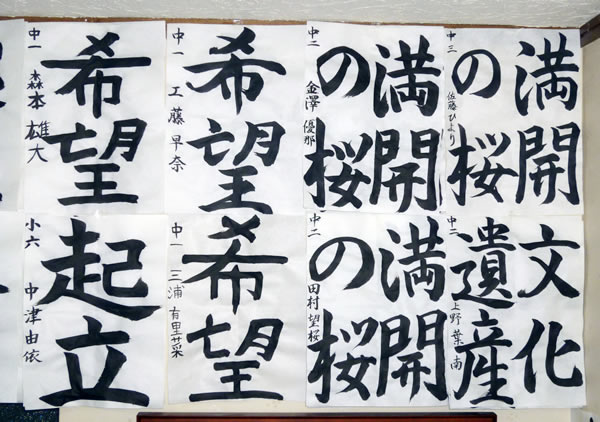 満開
の桜
中三 佐藤ひより
満開
の桜
中二 金澤優那
希望
中一 工藤早奈
希望
中一 森本雄大
文化
遺産
中二 上野葉南
満開
の桜
中二 田村望桜
希望
中一 三浦有里菜
起立
小六 中津由依